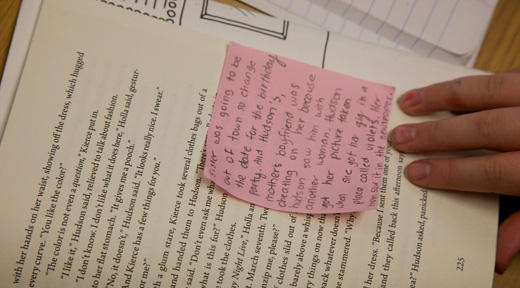 with her hands on her waist, showing off the dress, which hugged
every curve. "You like the color?"
"The color is not even a question," Kierce put in.
"I like it," Hudson said, relieved to talk about fashion.
"I don't know, I don't like what it does here," Holla said, gestur-
to her flat stomach. "It gives me a pooch."
"No, it doesn't," Hudson said. "It looks really nice. I swear."
And Kierce has a few things for you."
or me?"
h a glum stare, Kierce took several clothes bags out of a
and handed them to Hudson. "There's
said. "Don't even ask me
what is this for?" Hudson
took the clothes.
gy Night Live," Holla
t. March seventh. Tw
nzip me, please?"
clothes slid out of
barely above a whi
ry things on now
ack whatever does
he stammered. "Why
her dress, "Because I sent them one of you
and they called back this afternoon say
ea?" Hudson asked, panicked
225
was going to be
out of town so change
the date for the birthday
party and Hudson's,
mothers boyfriend was
cheating on her because
Hudson saw him with
another woman. Hudson
got her picture taken
than she got her gig in a
place called violets. Her
mom saw it in the newspaper.